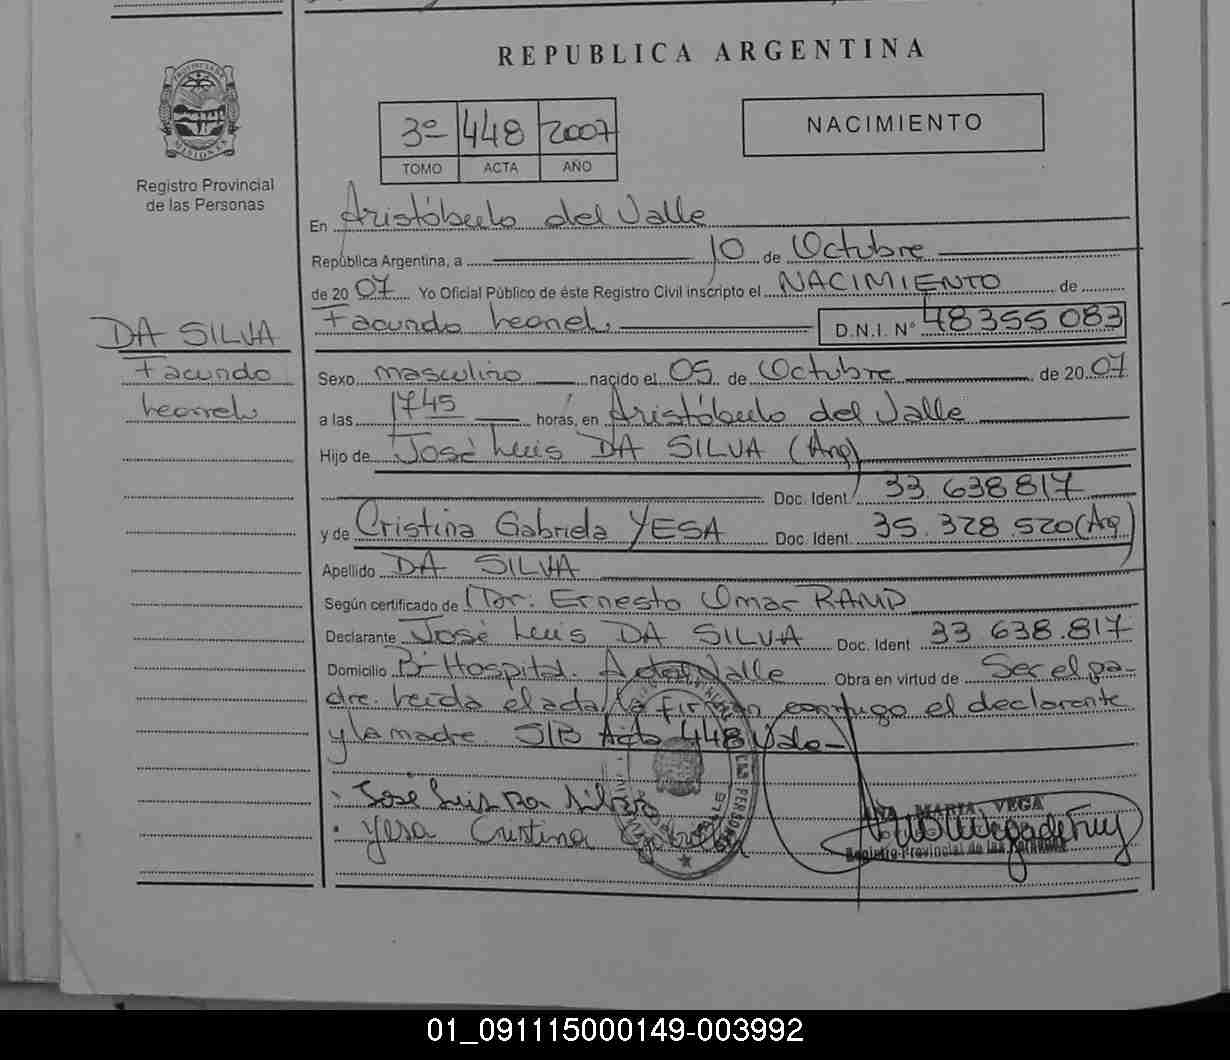 REPUBLICA ARGENTINA
PROVINCIA DE
MISIONES
Registro Provincial
de las Personas
3º 448 2007
TOMO ACTA AÑO
NACIMIENTO
En Aristóbulo del Valle
República Argentina, a 10 de Octubre
de 2007 Yo Oficial Público de éste Registro Civil inscripto el NACIMIENTO de
Facundo Leonel D.N.I. Nº 48355083
DA SILVA
Facundo
Leonel
Sexo masculino nacido el 05 de Octubre de 2007
a las 1745 horas, en Aristóbulo del Valle
Hijo de José Luis DA SILVA (Arg)
Doc. Ident. 33 638 817
y de Cristina Gabriela YESA Doc. Ident. 35.328.520 (Arg)
Apellido DA SILVA
Según certificado de Dr. Ernesto Omar RAMP
Declarante José Luis DA SILVA Doc. Ident 33 638.817
Domicilio Bº Hospital. A del Valle Obra en virtud de Ser el pa-
dre. Leida el acta la firman conmigo el declarante
y la madre. S/B Acta 448 Vale-
José Luis Da Silva
Yesa Cristina Gabriela
ANA MARIA VEGA
Registro Provincial de las Personas
01_091115000149-003992